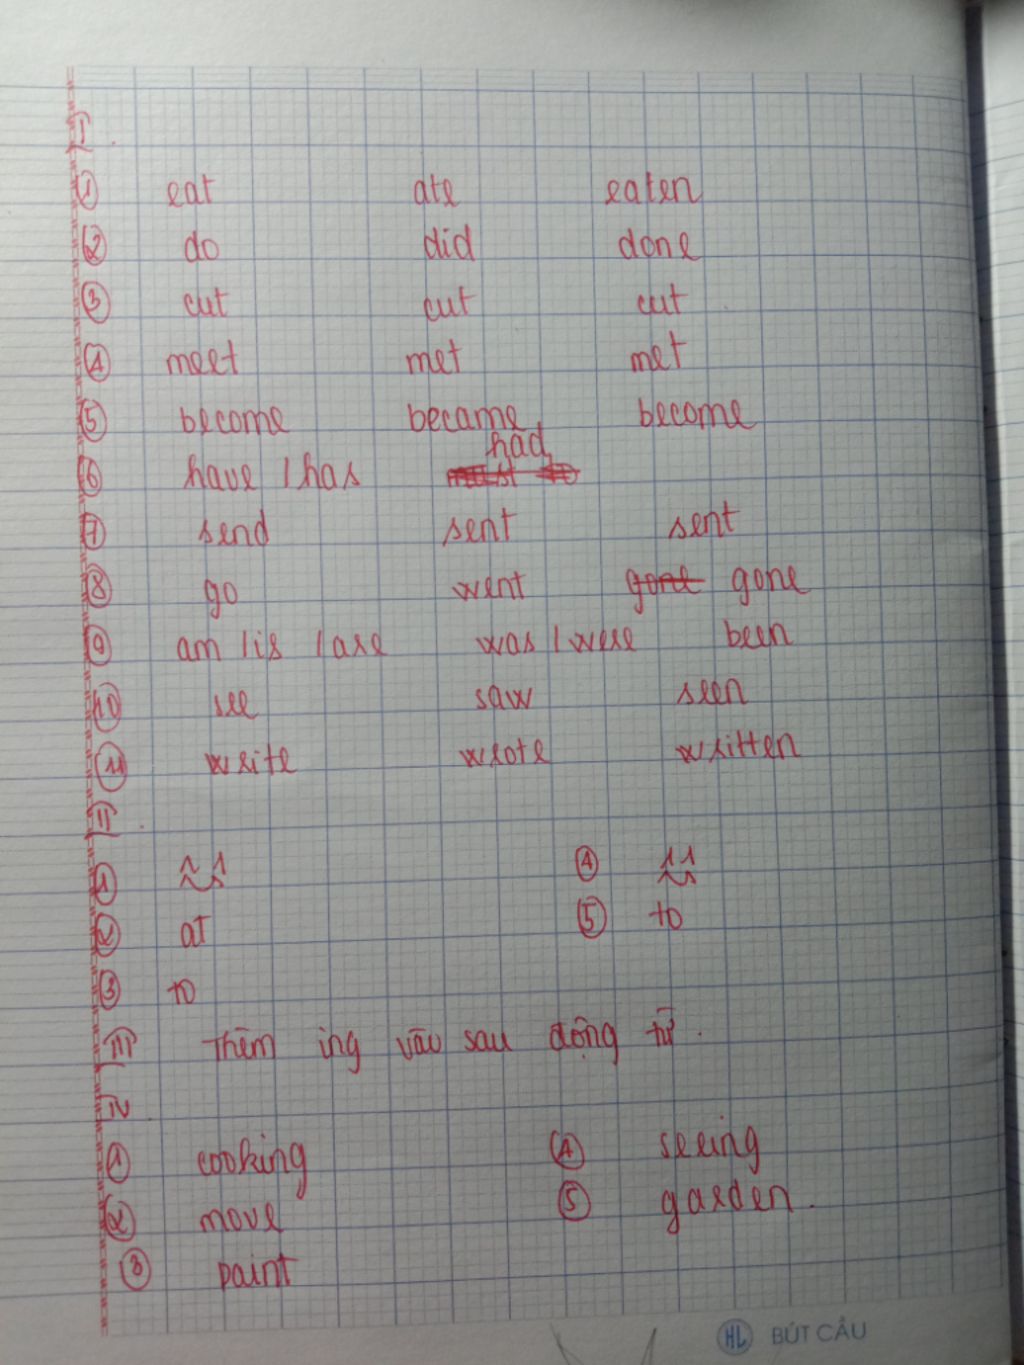 I.
① eat ate eaten
② do did done
③ cut cut cut
④ meet met met
⑤ become became become
⑥ have / has had
⑦ send sent sent
⑧ go went gone gone
⑨ am / is / are was / were been
⑩ see saw seen
⑪ write wrote written
II.
① ④
② at ⑤ to
③ to
III Thêm ing vào sau động từ.
IV
① cooking ④ seeing
② move ⑤ garden.
③ paint
HL BÚT CẦU